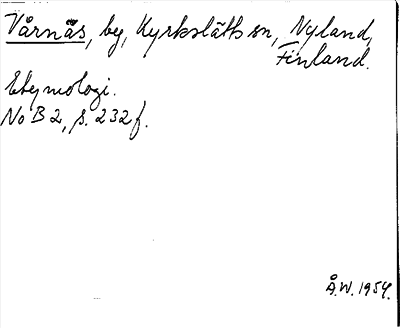 Vårnäs, by, Kyrkslätts sn, Nyland,
Finland.
Etymologi.
NoB 2, s. 232 f.
Å.W. 1954.